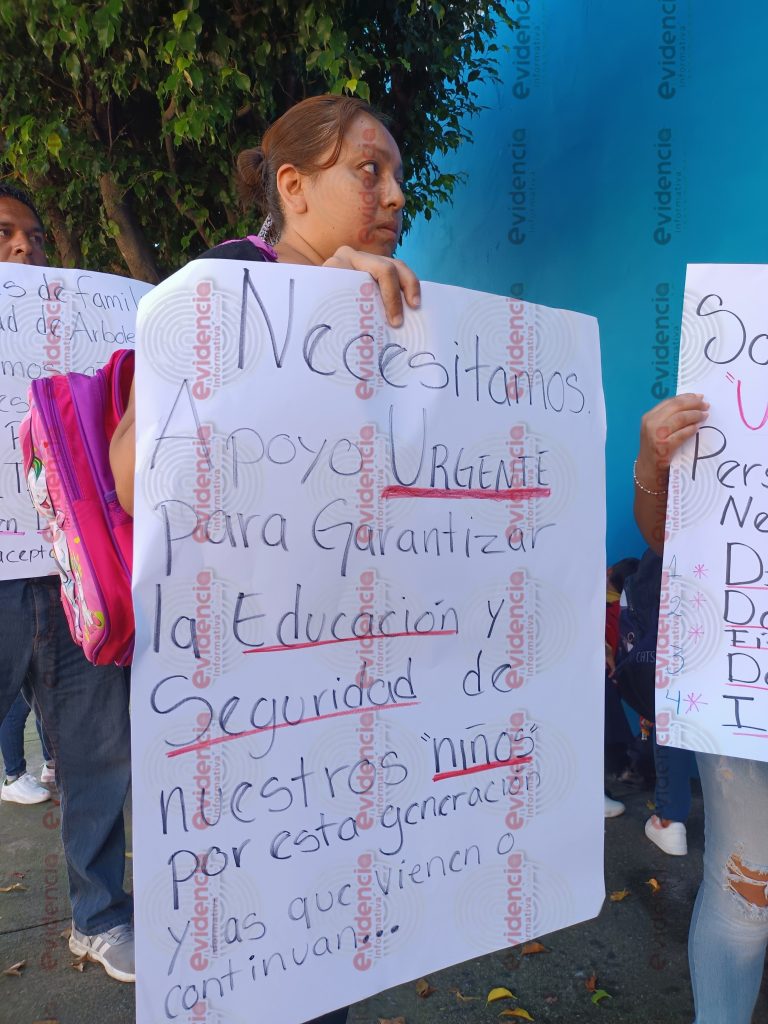 Necesitamos.
Apoyo URGENTE
para Garantizar
la Educación y
Seguridad de
nuestros "niños"
por esta generación
y las que vienen o
continuan...
s de famil
ad de Arbole
mos
So
"U
Pers
Ne
1 * D
2 Do
* Ei
3 Do
4 * I
evidencia
informativa